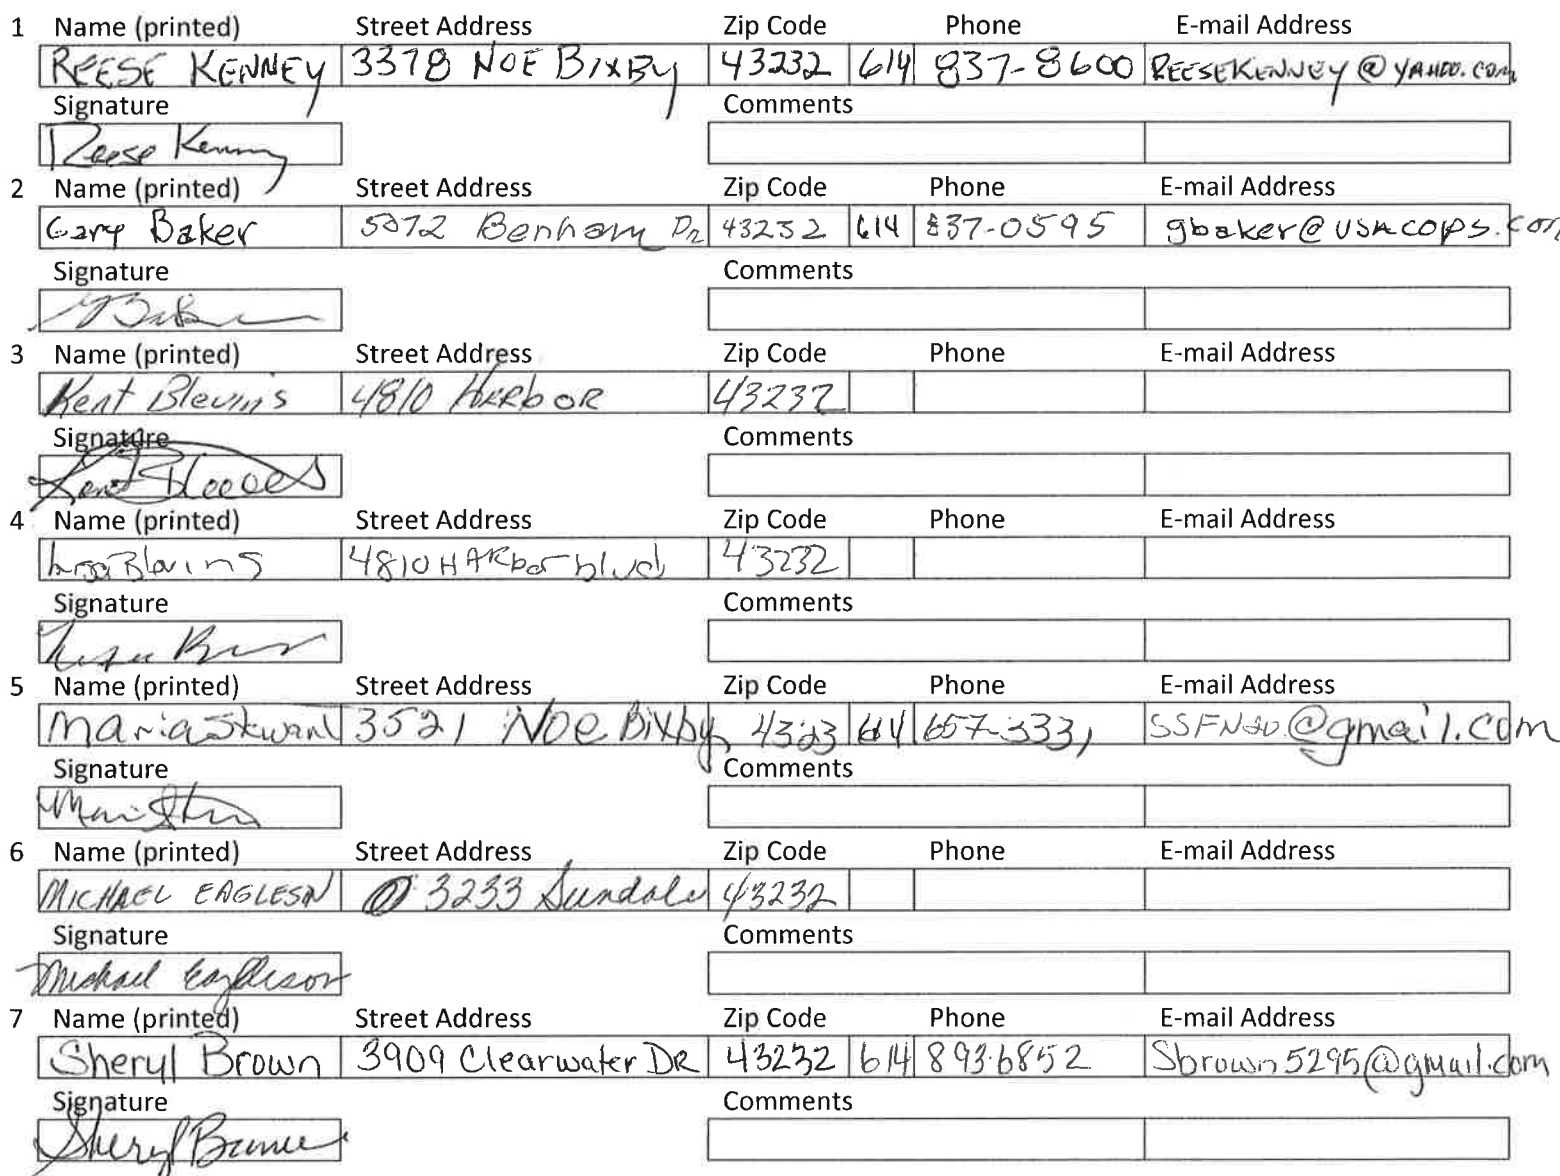 1 Name (printed) Street Address Zip Code Phone E-mail Address
REESE KENNEY 3378 NOE BIXBY 43232 614 837-8600 REESEKENNEY@YAHOO.COM
Signature Comments
Reese Kenney
2 Name (printed) Street Address Zip Code Phone E-mail Address
Gary Baker 5072 Benham Dr 43232 614 837-0595 gbaker@USACOPS.com
Signature Comments
GBaker
3 Name (printed) Street Address Zip Code Phone E-mail Address
Kent Blevins 4810 HARBOR 43232
Signature Comments
Kent
4 Name (printed) Street Address Zip Code Phone E-mail Address
Blevins 4810 HARbor blvd 43232
Signature Comments
5 Name (printed) Street Address Zip Code Phone E-mail Address
Maria 3521 Noe Bixby 4323 614 657-3331 @gmail.com
Signature Comments
6 Name (printed) Street Address Zip Code Phone E-mail Address
MICHAEL EAGLESN 3233 Sundale 43232
Signature Comments
Michael Eagleson
7 Name (printed) Street Address Zip Code Phone E-mail Address
Sheryl Brown 3909 Clearwater DR 43232 614 893-6852 Sbrown5295@gmail.com
Signature Comments
Sheryl Brown